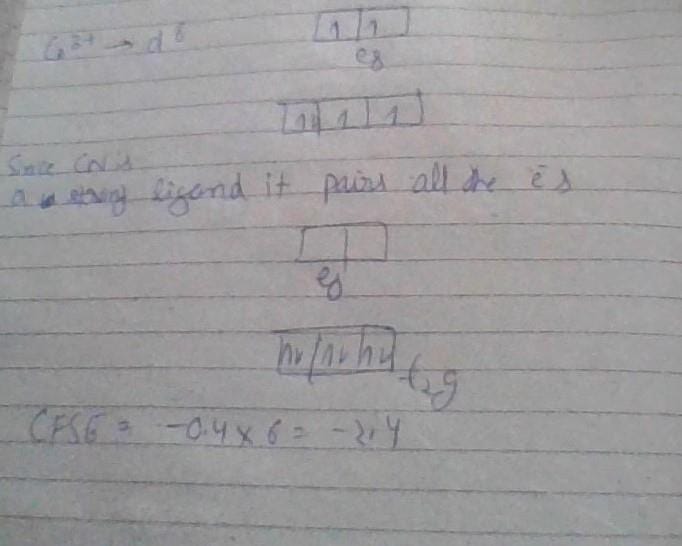 Co³⁺ → d⁶
1 1
eg
1↓ 1 1
Since CN is
a strong ligand it pairs all the ēs
eg
1↓ 1↓ 1↓ t₂g
CFSE = -0.4 x 6 = -2.4